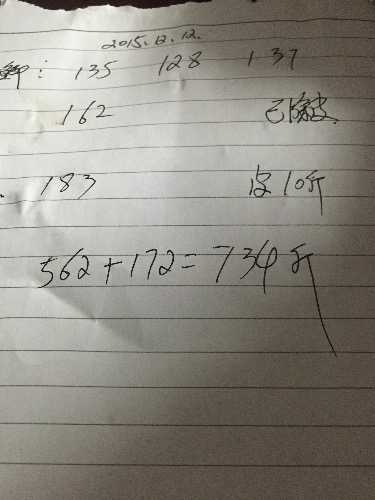 2015.12.12.
135 128 137
162 已除皮
183 皮10斤
562+172=734斤